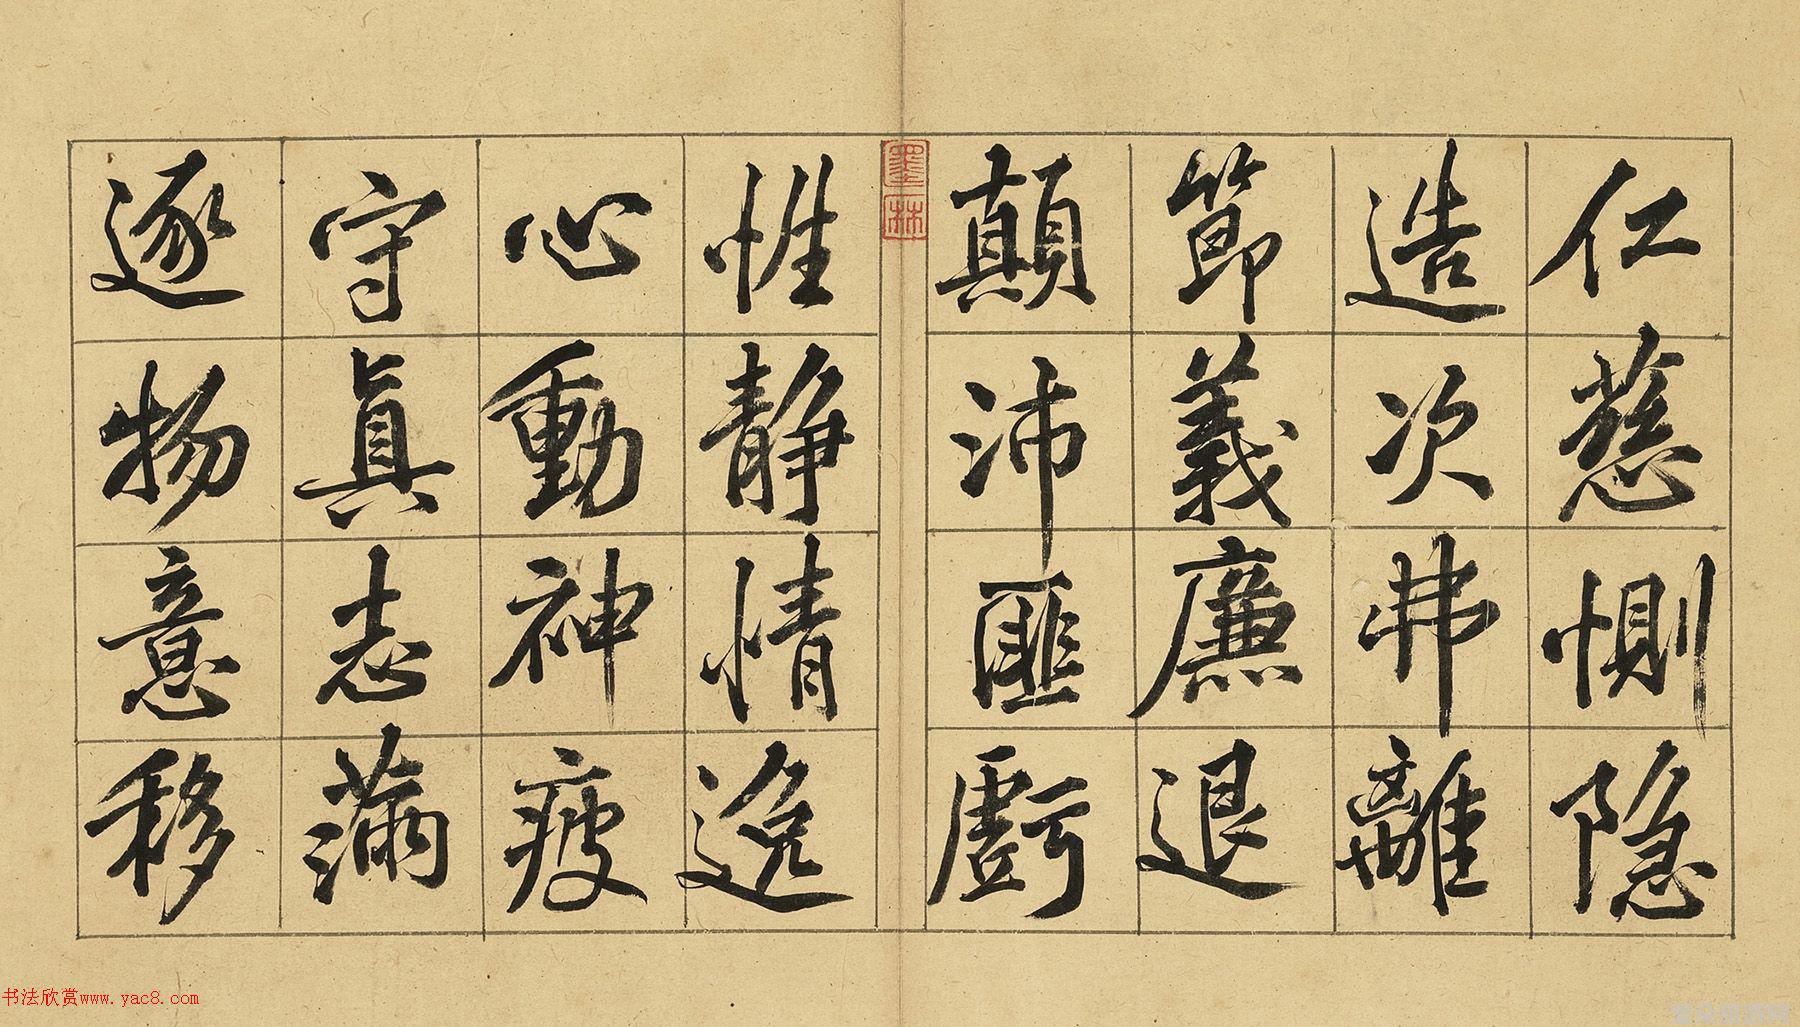 仁慈惻隐
造次弗離
節義廉退
顛沛匪虧
性静情逸
心動神疲
守真志满
逐物意移
墨林
书法欣赏www.yac8.com